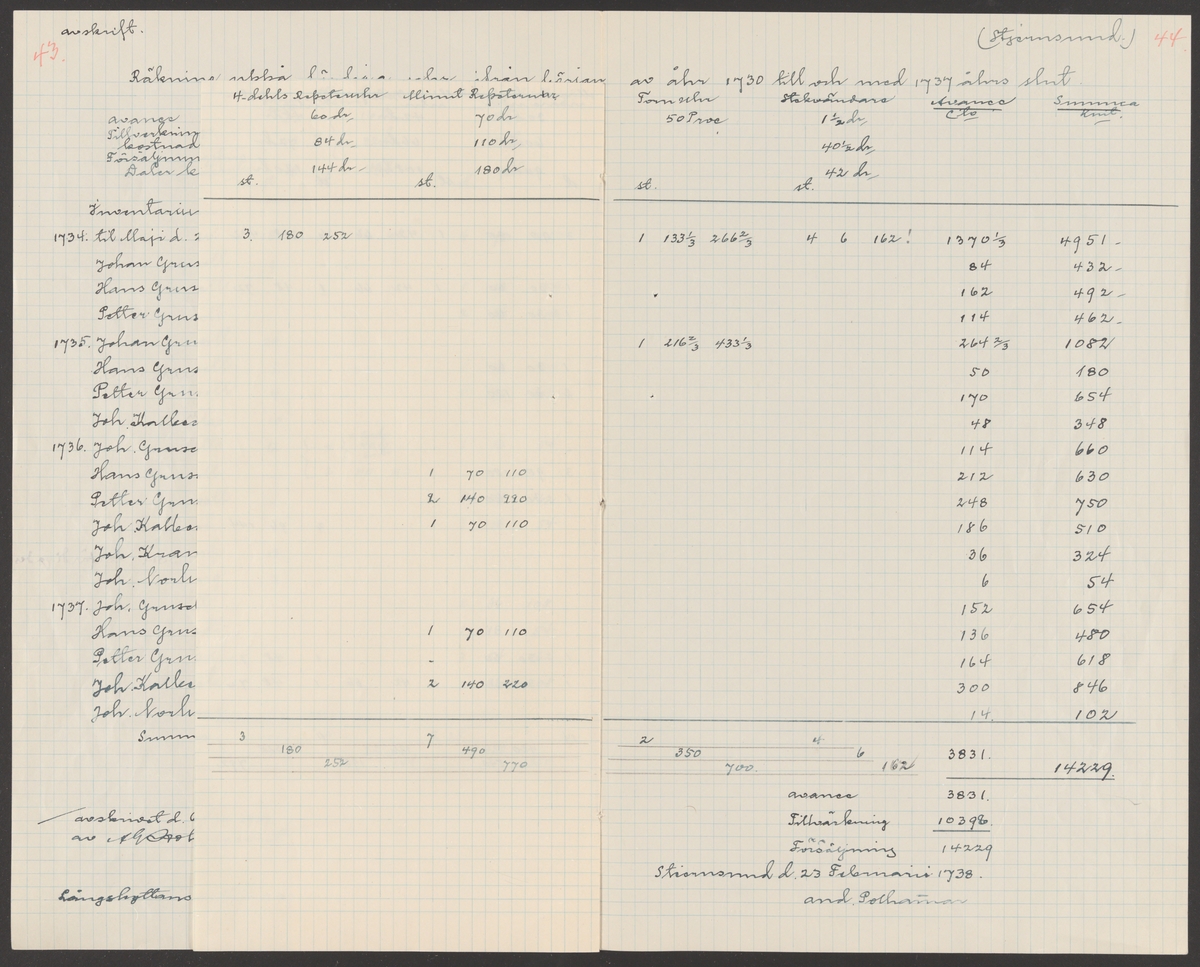 avskrift.
43.
(Stjernsund.) 44.
Räkning av åhr 1730 till och med 1737 åhrs slut
4-dehls Repeteruhr Minut Repeteruhr Tornuhr Stekvändare Avance Summa
avance 60 dr 70 dr 50 Proc 1½ dr Clo kmt.
Tillverkning
kostnad 84 dr 110 dr 40½ dr
Försäljnin
Daler k 144 dr 180 dr 42 dr
st. st. st. st.
Inventariu
1734. til Maji d. 3. 180 252 1 133⅓ 266⅔ 4 6 162! 1370⅓ 4951
Johan Grus 84 432
Hans Grus 162 492
Petter Grus 114 462
1735. Johan Gru 1 216⅔ 433⅓ 264⅔ 1082
Hans Grus 50 180
Petter Gru 170 654
Joh. Kalbes 48 348
1736. Joh. Gruse 114 660
Hans Grus 1 70 110 212 630
Petter Grus 2 140 220 248 750
Joh. Kalbe 1 70 110 186 510
Joh. Kran 36 324
Joh. Norh 6 54
1737. Joh. Grusc 152 654
Hans Grus 1 70 110 136 480
Petter Gru - 164 618
Joh. Kalbe 2 140 220 300 846
Joh. Norh 14. 102
Summ 3 7 2 4
180 490 350 6 3831.
252 770 700. 162 14229.
avance 3831.
Tillvärkning 10398.
Försäljning 14229
avskrivet d. 6
av
Stiernsund d. 23 Februarii 1738.
Långshyttans
and. Polhamar